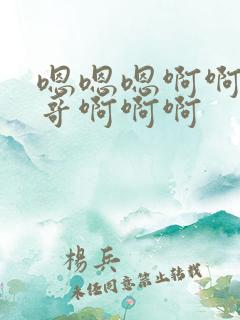 嗯嗯嗯啊啊
哥啊啊啊
楊兵
未经同意禁止转载